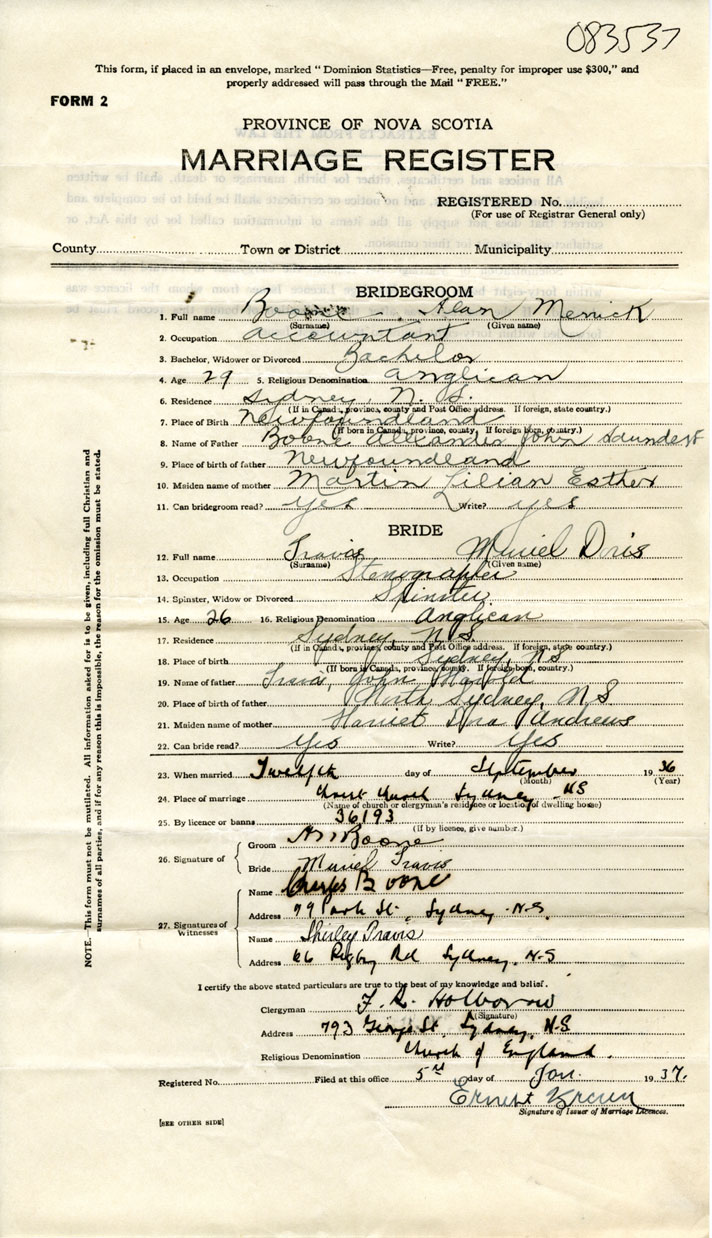 083537
This form, if placed in an envelope, marked "Dominion Statistics—Free, penalty for improper use $300," and
properly addressed will pass through the Mail "FREE."
FORM 2
PROVINCE OF NOVA SCOTIA
MARRIAGE REGISTER
REGISTERED No.
(For use of Registrar General only)
County Town or District Municipality
BRIDEGROOM
1. Full name Boone Alan Merrick
(Surname) (Given name)
2. Occupation accountant
3. Bachelor, Widower or Divorced Bachelor
4. Age 29 5. Religious Denomination Anglican
6. Residence Sydney, N. S.
(If in Canada, province, county and Post Office address. If foreign, state country.)
7. Place of Birth Newfoundland
(If born in Canada, province, county. If foreign born, country.)
8. Name of Father Boone Allexander John
9. Place of birth of father Newfoundland
10. Maiden name of mother Martin Lilian Esther
11. Can bridegroom read? yes Write? yes
BRIDE
12. Full name Travis Muriel Dris
(Surname) (Given name)
13. Occupation Stenographer
14. Spinster, Widow or Divorced Spinster
15. Age 26 16. Religious Denomination Anglican
17. Residence Sydney, N S
(If in Canada, province, county and Post Office address. If foreign, state country.)
18. Place of birth Sydney, N S
(If born in Canada, province, county. If foreign born, country.)
19. Name of father Travis, John Harold
20. Place of birth of father North Sydney, N S
21. Maiden name of mother Harriet Andrews
22. Can bride read? Yes Write? Yes
23. When married Twelfth day of September 1936
(Month) (Year)
24. Place of marriage Christ Church Sydney NS
(Name of church or clergyman's residence or location of dwelling house)
25. By licence or banns 36193
(If by licence, give number.)
26. Signature of
Groom Boone
Bride Muriel Travis
27. Signatures of Witnesses
Name Charles Boone
Address 79 Park St., Sydney N.S.
Name Shirley Travis
Address 66 Rigby Rd Sydney, N.S
I certify the above stated particulars are true to the best of my knowledge and belief.
Clergyman F. R. Holborow
(Signature)
Address 793 George St., Sydney, N.S
Religious Denomination Church of England.
Registered No. Filed at this office 5th day of Jan. 1937.
Ernest
Signature of Issuer of Marriage Licences.
[SEE OTHER SIDE]
NOTE.—This form must not be mutilated. All information asked for is to be given, including full Christian and
surnames of all parties, and if for any reason this is impossible, the reason for the omission must be stated.